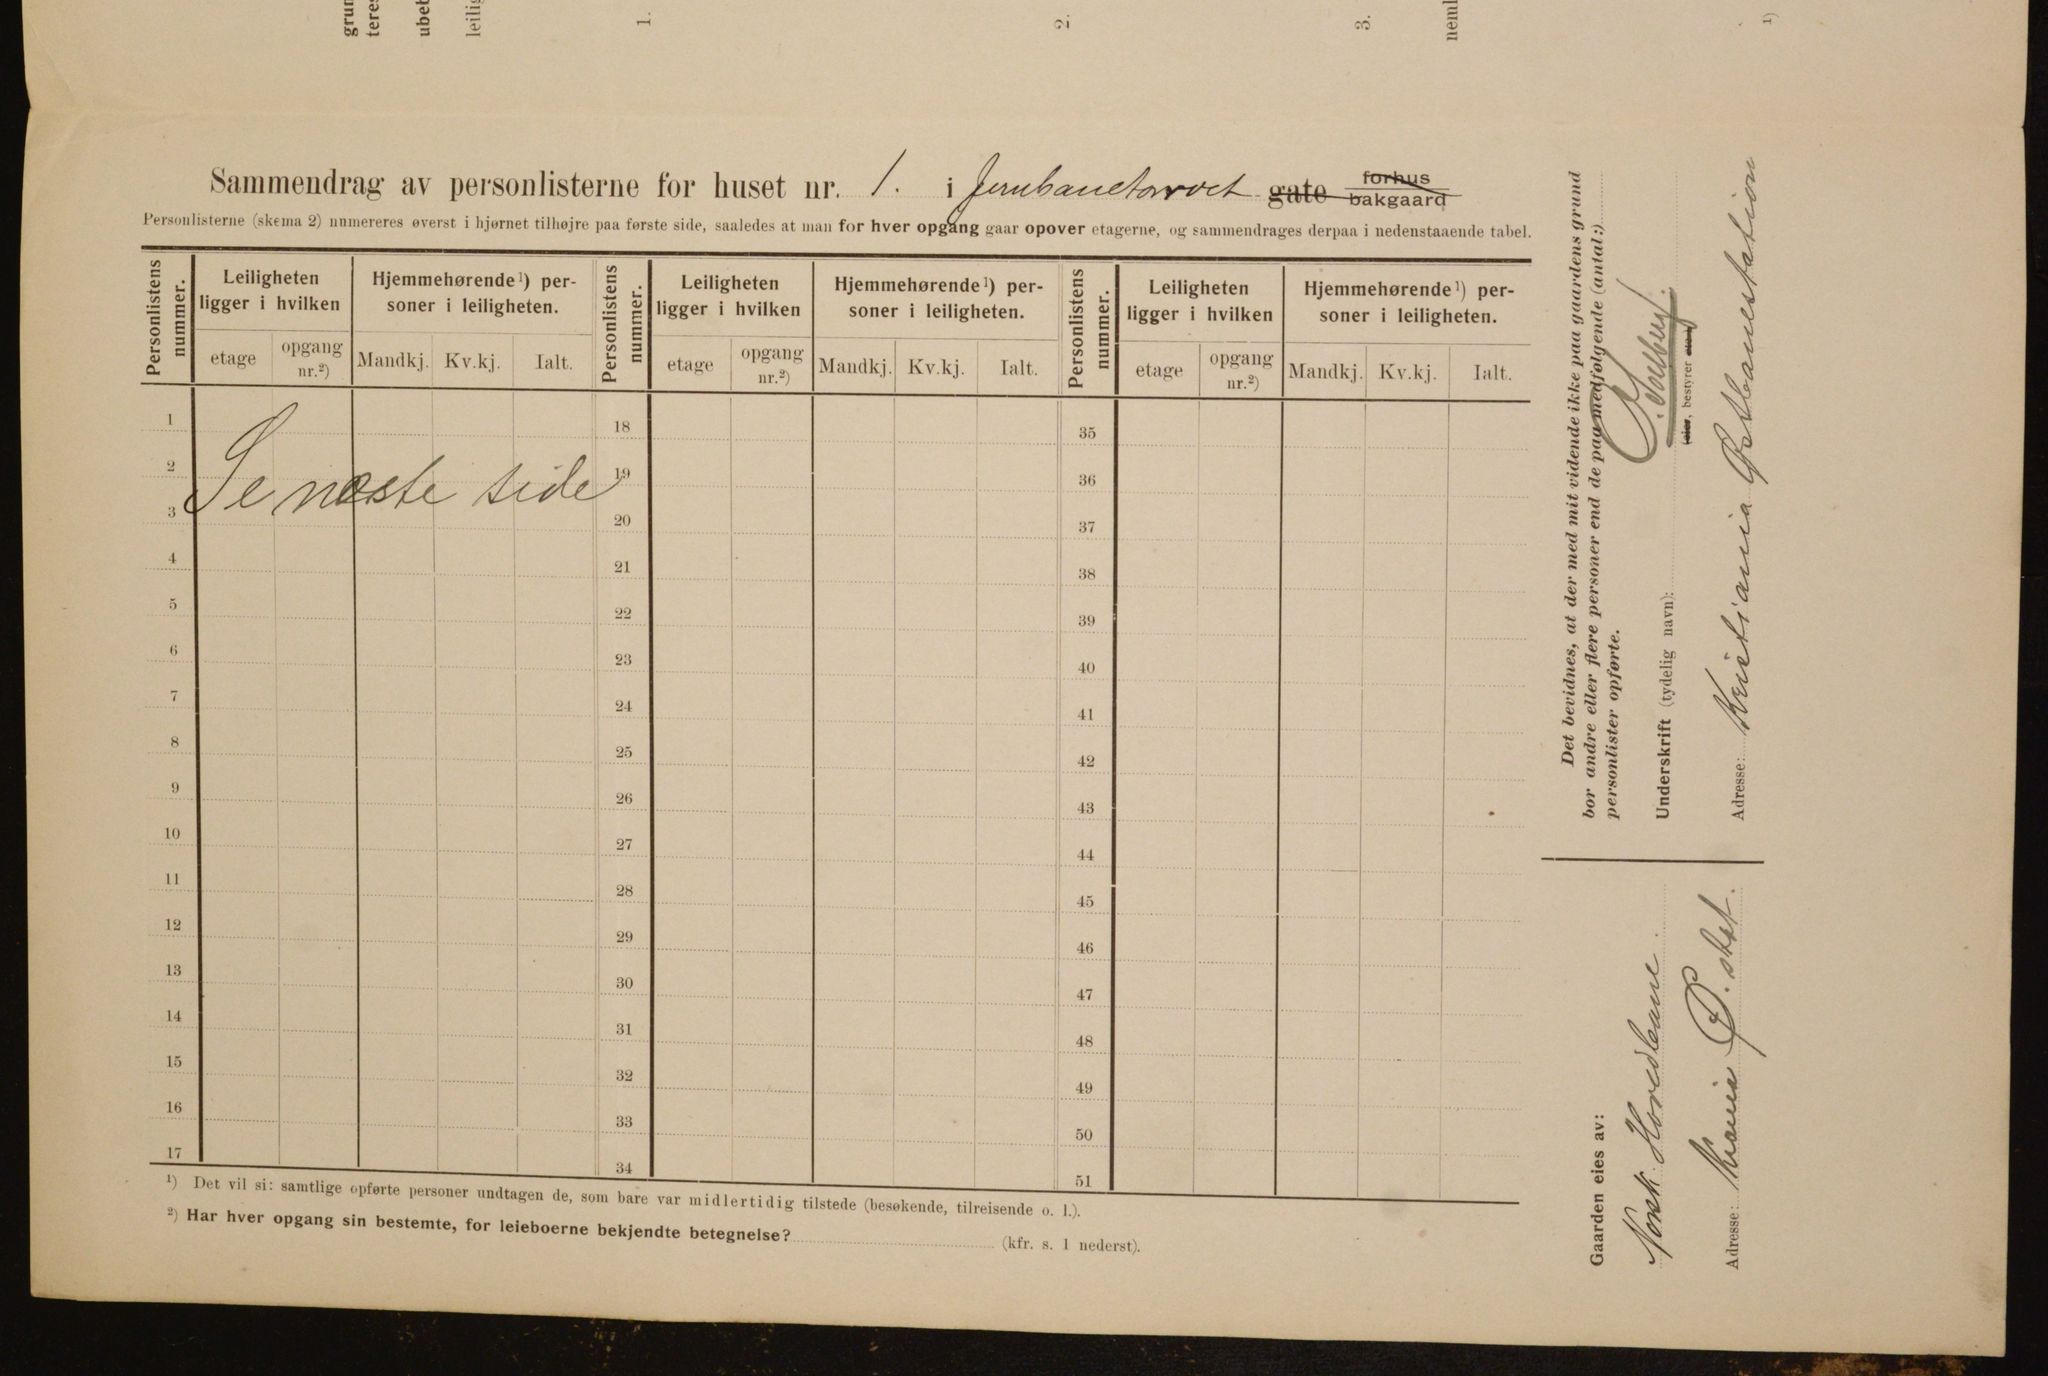 grun
teres
ubeb
leilig
1.
2.
3.
neml
1)
Sammendrag av personlisterne for huset nr. 1. i Jernbanetorvet gate forhus bakgaard
Personlisterne (skema 2) nummereres øverst i hjørnet tilhøjre paa første side, saaledes at man for hver opgang gaar opover etagerne, og sammendrages derpaa i nedenstaaende tabel.
Personlistens nummer. Leiligheten ligger i hvilken Hjemmehørende¹) personer i leiligheten. Personlistens nummer. Leiligheten ligger i hvilken Hjemmehørende¹) personer i leiligheten. Personlistens nummer. Leiligheten ligger i hvilken Hjemmehørende¹) personer i leiligheten.
etage opgang nr.²) Mandkj. Kv.kj. Ialt. etage opgang nr.²) Mandkj. Kv.kj. Ialt. etage opgang nr.²) Mandkj. Kv.kj. Ialt.
1 18 35
2 19 36
Se næste side
3 20 37
4 21 38
5 22 39
6 23 40
7 24 41
8 25 42
9 26 43
10 27 44
11 28 45
12 29 46
13 30 47
14 31 48
15 32 49
16 33 50
17 34 51
¹) Det vil si: samtlige opførte personer undtagen de, som bare var midlertidig tilstede (besøkende, tilreisende o. l.).
²) Har hver opgang sin bestemte, for leieboerne bekjendte betegnelse? (kfr. s. 1 nederst).
Det bevidnes, at der med mit vidende ikke paa gaardens grund
bor andre eller flere personer end de paa medfølgende (antal:)
personlister opførte.
Underskrift (tydelig navn): Solberg.
(eier, bestyrer
Adresse: Kristiania Østbanestation
Gaarden eies av:
Norsk Hovedbane.
Adresse: Krania Ø. stat.